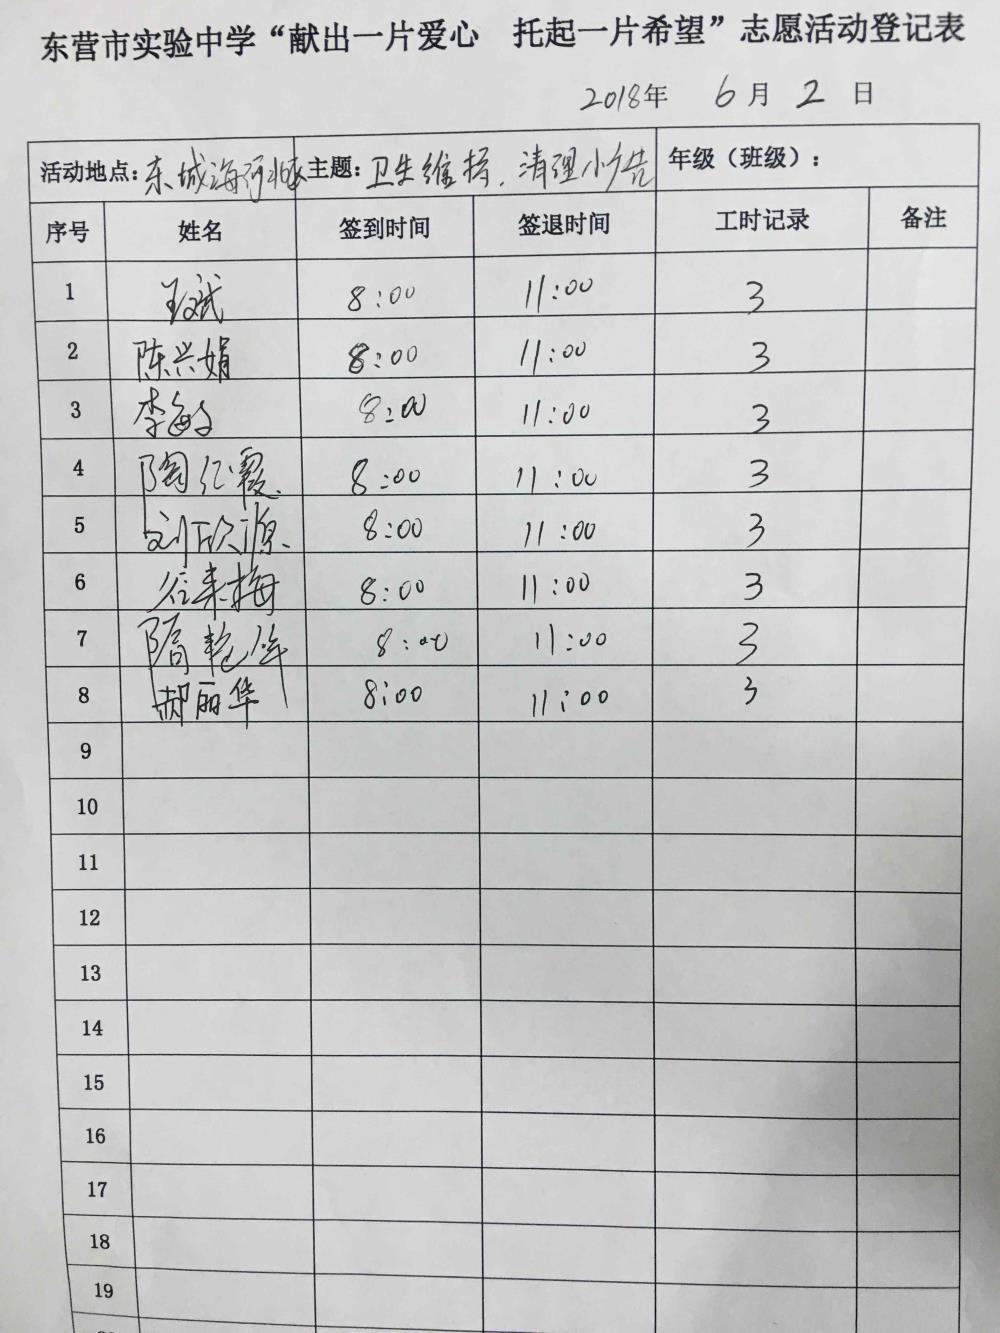 东营市实验中学“献出一片爱心 托起一片希望”志愿活动登记表
2018年 6月 2日
活动地点：东城海河 主题：卫生维护、清理小广告 年级（班级）：
序号 姓名 签到时间 签退时间 工时记录 备注
1 王斌 8:00 11:00 3
2 陈兴娟 8:00 11:00 3
3 李海 8:00 11:00 3
4 陶红霞 8:00 11:00 3
5 刘欣源 8:00 11:00 3
6 谷来梅 8:00 11:00 3
7 隋 8:00 11:00 3
8 郝丽华 8:00 11:00 3
9
10
11
12
13
14
15
16
17
18
19